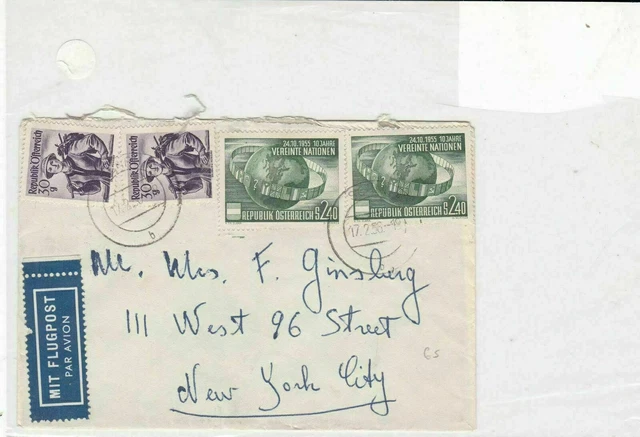 Republik Österreich
30 g
Republik Österreich
30 g
24.10.1955 10 JAHRE
VEREINTE NATIONEN
REPUBLIK ÖSTERREICH S 2.40
24.10.1955 10 JAHRE
VEREINTE NATIONEN
REPUBLIK ÖSTERREICH S 2.40
b
17.2.56
MIT FLUGPOST
PAR AVION
Mr. Mrs. F. Ginsberg
111 West 96 Street
New York City